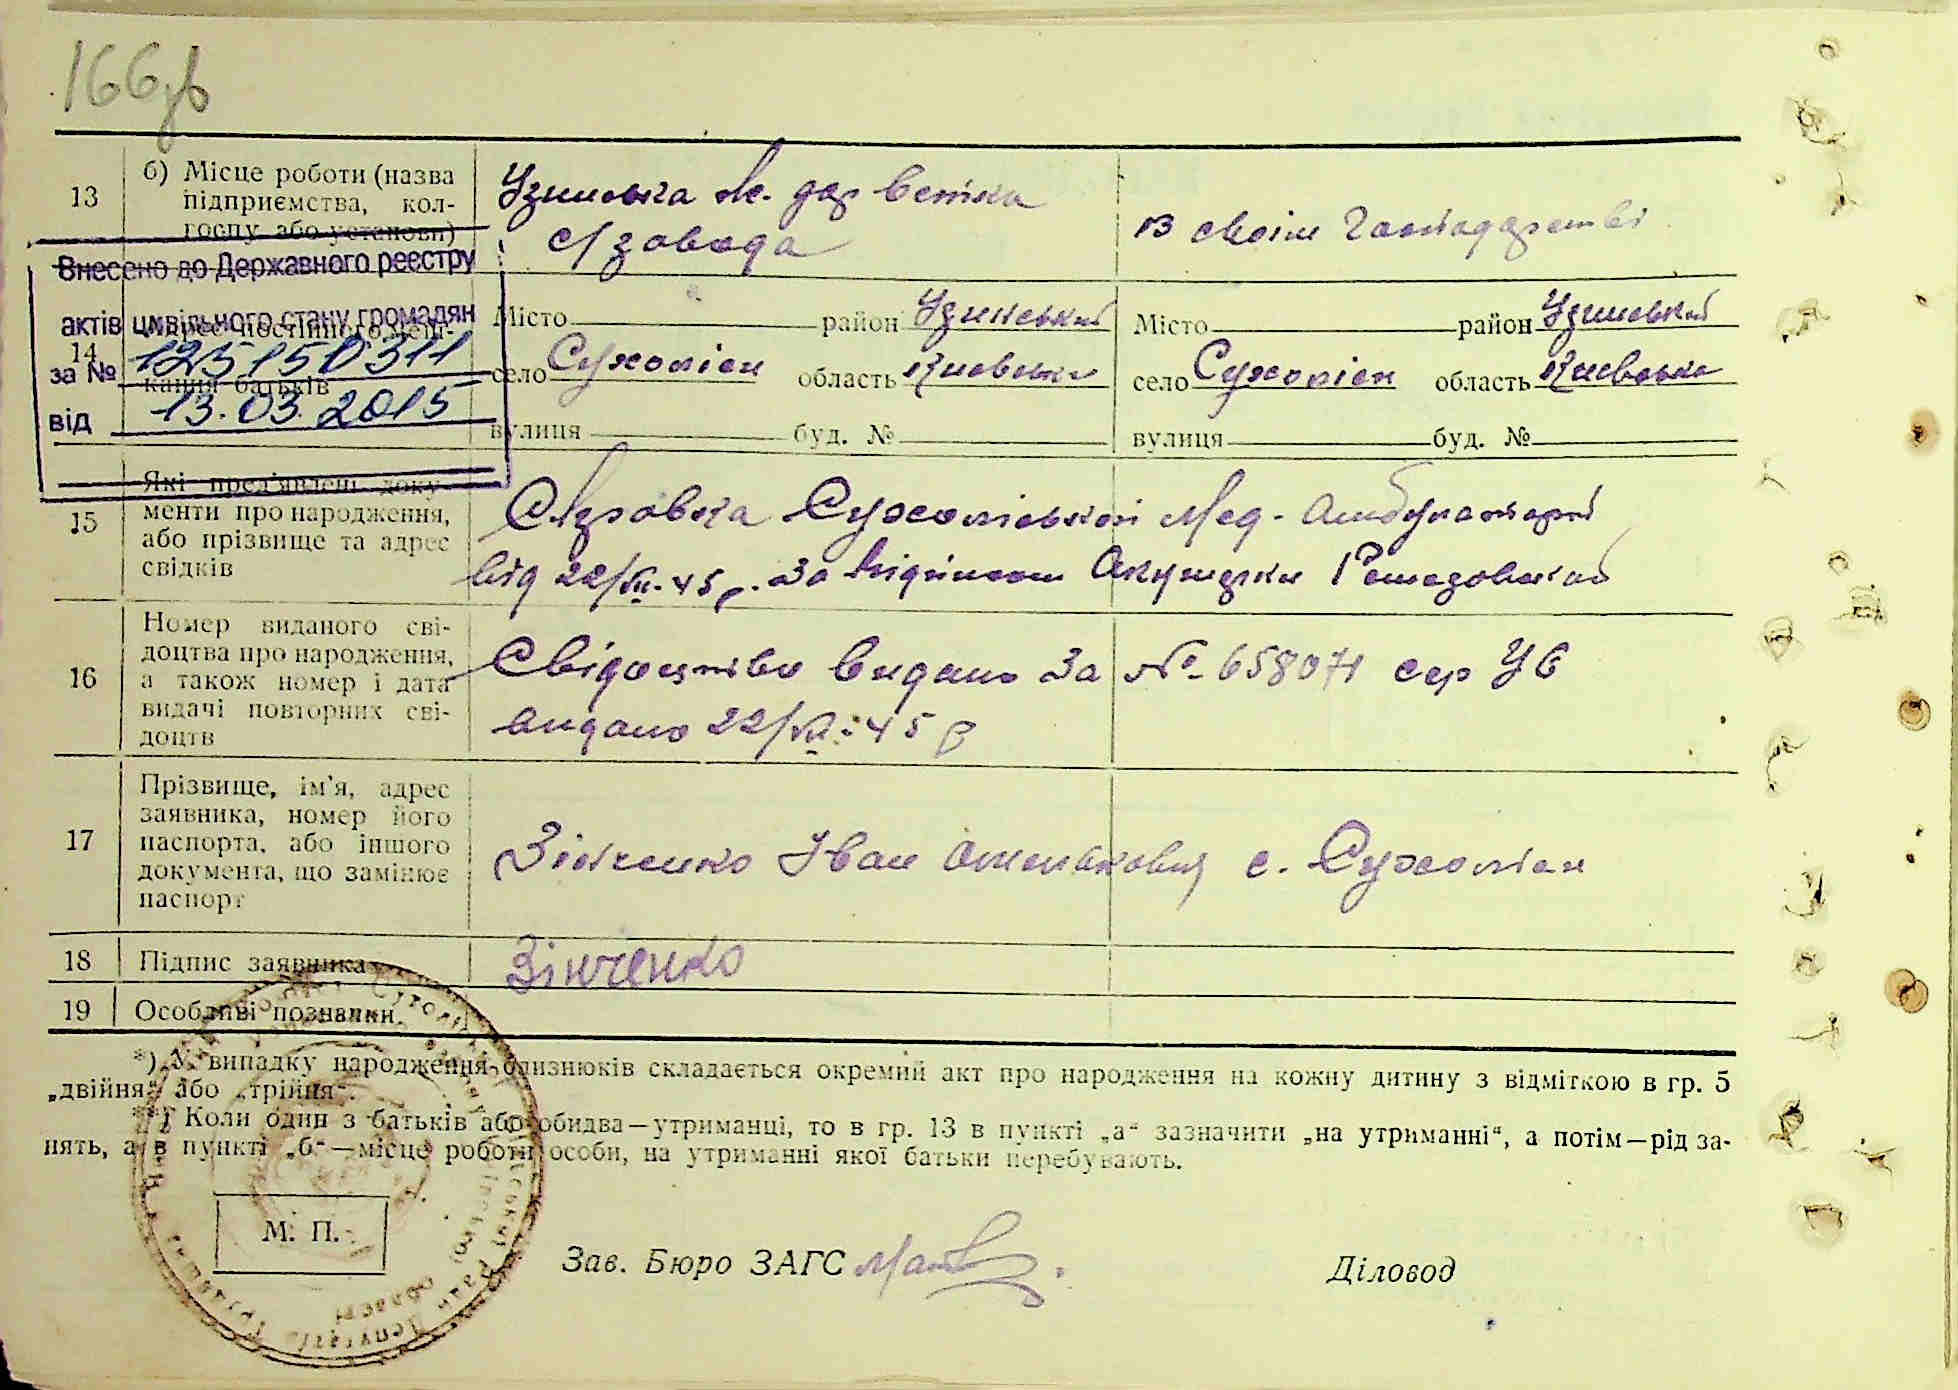 166
13
б) Місце роботи (назва
підприємства, кол-
госпу або установи)
Узинська
с/завода
в своїм Господарстві
Внесено до Державного реєстру
актів цивільного стану громадян
за № 125150311
від 13.03.2015
14
Адрес постійного меш-
кання батьків
Місто район Узинський
село Сухоліси область Київська
вулиця буд. №
Місто район Узинський
село Сухоліси область Київська
вулиця буд. №
15
Які пред'явлені доку-
менти про народження,
або прізвище та адрес
свідків
Справка Сухоліської Мед-Амбулаторії
від 22/VII-45р. За підписом Акушерки
16
Номер виданого сві-
доцтва про народження,
а також номер і дата
видачі повторних сві-
доцтв
Свідоцтво видано За № 658071 сер УБ
видано 22/VII-45 р
17
Прізвище, ім'я, адрес
заявника, номер його
паспорта, або іншого
документа, що замінює
паспорт
Зінченко Іван с. Сухоліси
18
Підпис заявника
Зінченко
19
Особливі познавки
*) У випадку народження близнюків складається окремий акт про народження на кожну дитину з відміткою в гр. 5
„двійня“ або „трійня“.
**) Коли один з батьків або обидва—утриманці, то в гр. 13 в пункті „а“ зазначити „на утриманні“, а потім—рід за-
нять, а в пункті „б“—місце роботи особи, на утриманні якої батьки перебувають.
М. П.
Зав. Бюро ЗАГС
Діловод